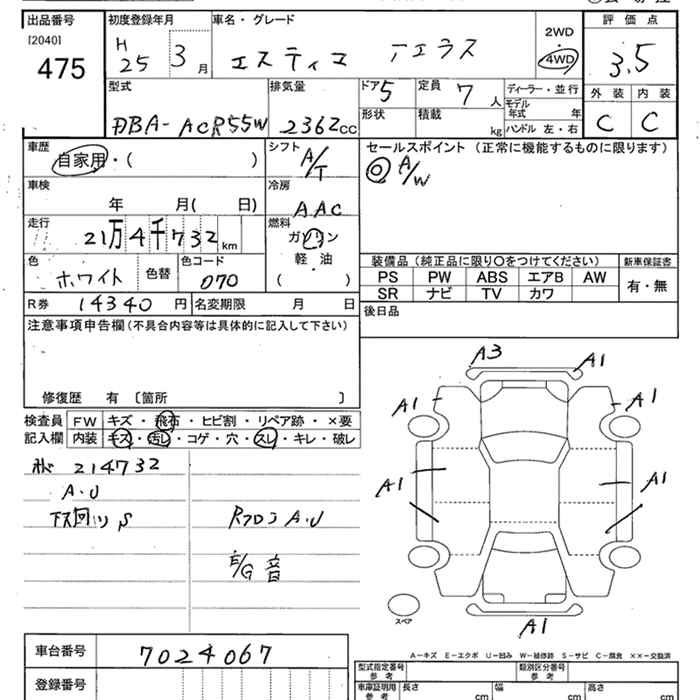 出品番号
[2040]
475
初度登録年月
H
25 3月
車名・グレード
エスティマ アエラス
2WD
・
4WD
評価点
3.5
外装 内装
C C
型式
DBA-ACR55W
排気量
2362cc
ドア 5
形状
定員 7 人
積載 kg
ディーラー・並行
モデル年式 年
ハンドル 左・右
車歴
自家用・( )
シフト
A/T
セールスポイント (正常に機能するものに限ります)
◎ A/W
車検
年 月( 日)
冷房
AAC
走行
21万4千732km
燃料
ガソリン
・
軽油
・
( )
色
ホワイト
色替
色コード
070
装備品 (純正品に限り○をつけてください) 新車保証書
PS PW ABS エアB AW
SR ナビ TV カワ
有・無
R券 14340円
名変期限 月 日
後日品
注意事項申告欄 (不具合内容等は具体的に記入して下さい)
修復歴 有 〔箇所 〕
検査員
記入欄
FW キズ・飛石・ヒビ割・リペア跡・×要
内装 キズ・汚レ・コゲ・穴・スレ・キレ・破レ
214732
A・U
下回り S
Rフロア A・U
E/G 音
A3
A1
A1
A1
A1
A1
A1
スペア
A-キズ E-エクボ U-凹み W-補修跡 S-サビ C-腐食 ××-交換済
車台番号 7024067
登録番号
型式指定番号
参考
類別区分番号
参考
車庫証明用
参考
長さ cm
幅 cm
高さ cm